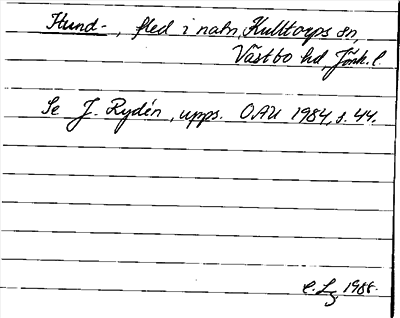 Hund-, fled i natn, Kulltorps sn,
Västbo hd, Jönk. l.
Se J. Rydén, upps. OAU 1984, s. 44.
C. Lg 1988.